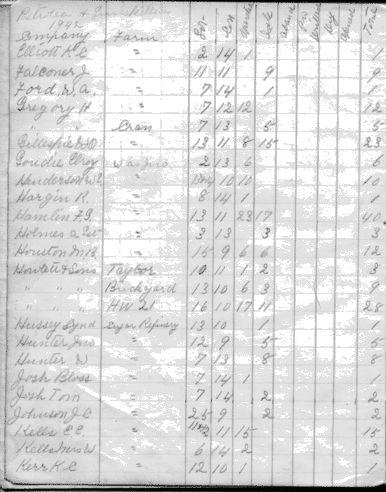 Petrolea &
1942
Company Farm Lot Con Sold Total
Elliott R.C. " 2 14 1 1
Falconer J. " 11 11 9 9
Ford, W.A. " 7 14 1 1
Gregory H " 7 12 12 12
" " Cran 7 13 5 5
Gillespie " 13 11 8 15 23
Goudie Elroy 2 13 6 6
Henderson 10 10 10
Hargin R. " 8 14 1 1
Hamlin F.G. " 13 11 23 17 40
Holmes a " 3 13 3 3
Houston " 15 9 6 6
Howlett & Sons Taylor 10 11 1 2 3
" " " Brickyard 13 10 6 3 9
" " " HW 21 16 10 17 11 28
Hussey Synd Refinery 13 10 1 1
Hunter Jno " 12 9 5 5
Hunter W " 7 13 8 8
Josh Bloss " 7 14 1 1
Josh Tom " 7 14 2 2
Johnson J.C. " 25 9 2 2
Kells C.C. " 11 15 15
Kells W " 6 14 2 2
Kerr K.C " 12 10 1 1